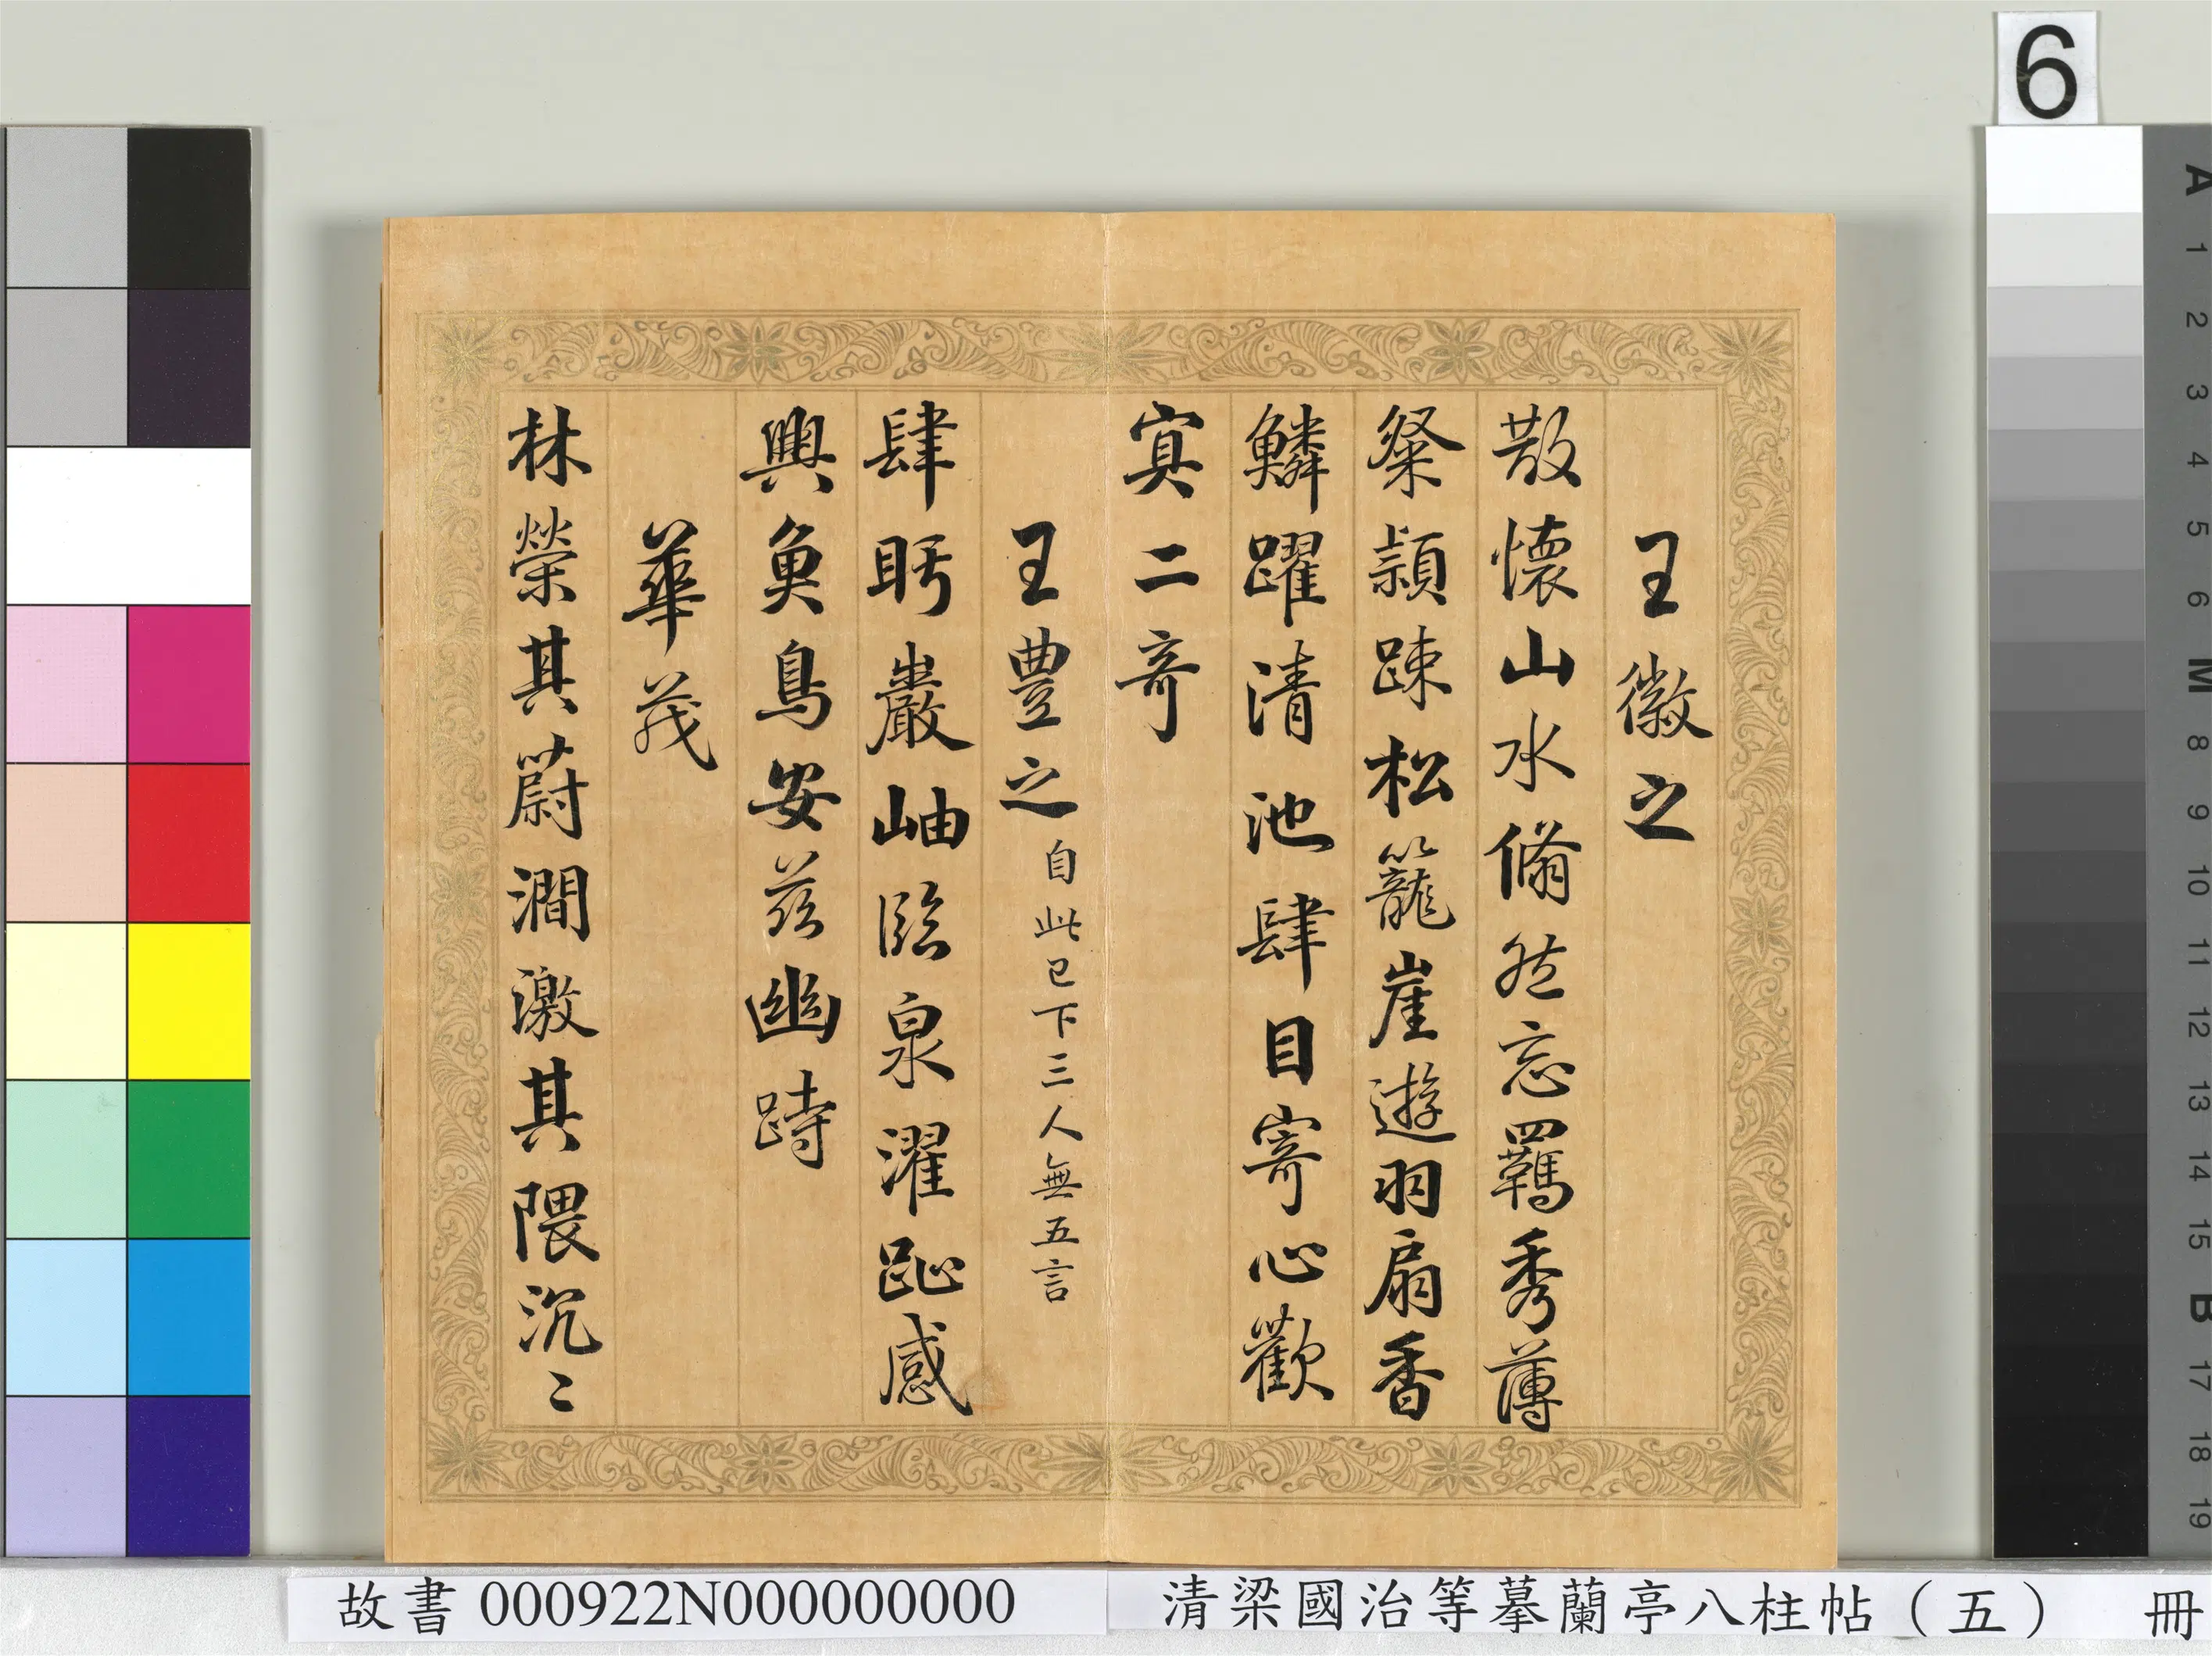 王徽之
散懷山水翛然忘羈秀薄
粲穎踈松籠崖遊羽扇香
鱗躍清池肆目寄心歡
寘二奇
王豊之自此已下三人無五言
肆眄巖岫臨泉濯趾感
興魚鳥安茲幽跱
華茂
林榮其蔚澗激其隈沉〻
6
A 1 2 3 4 5 6 M 8 9 10 11 12 13 14 15 B 17 18 19
故書 000922N000000000
清梁國治等摹蘭亭八柱帖（五） 冊